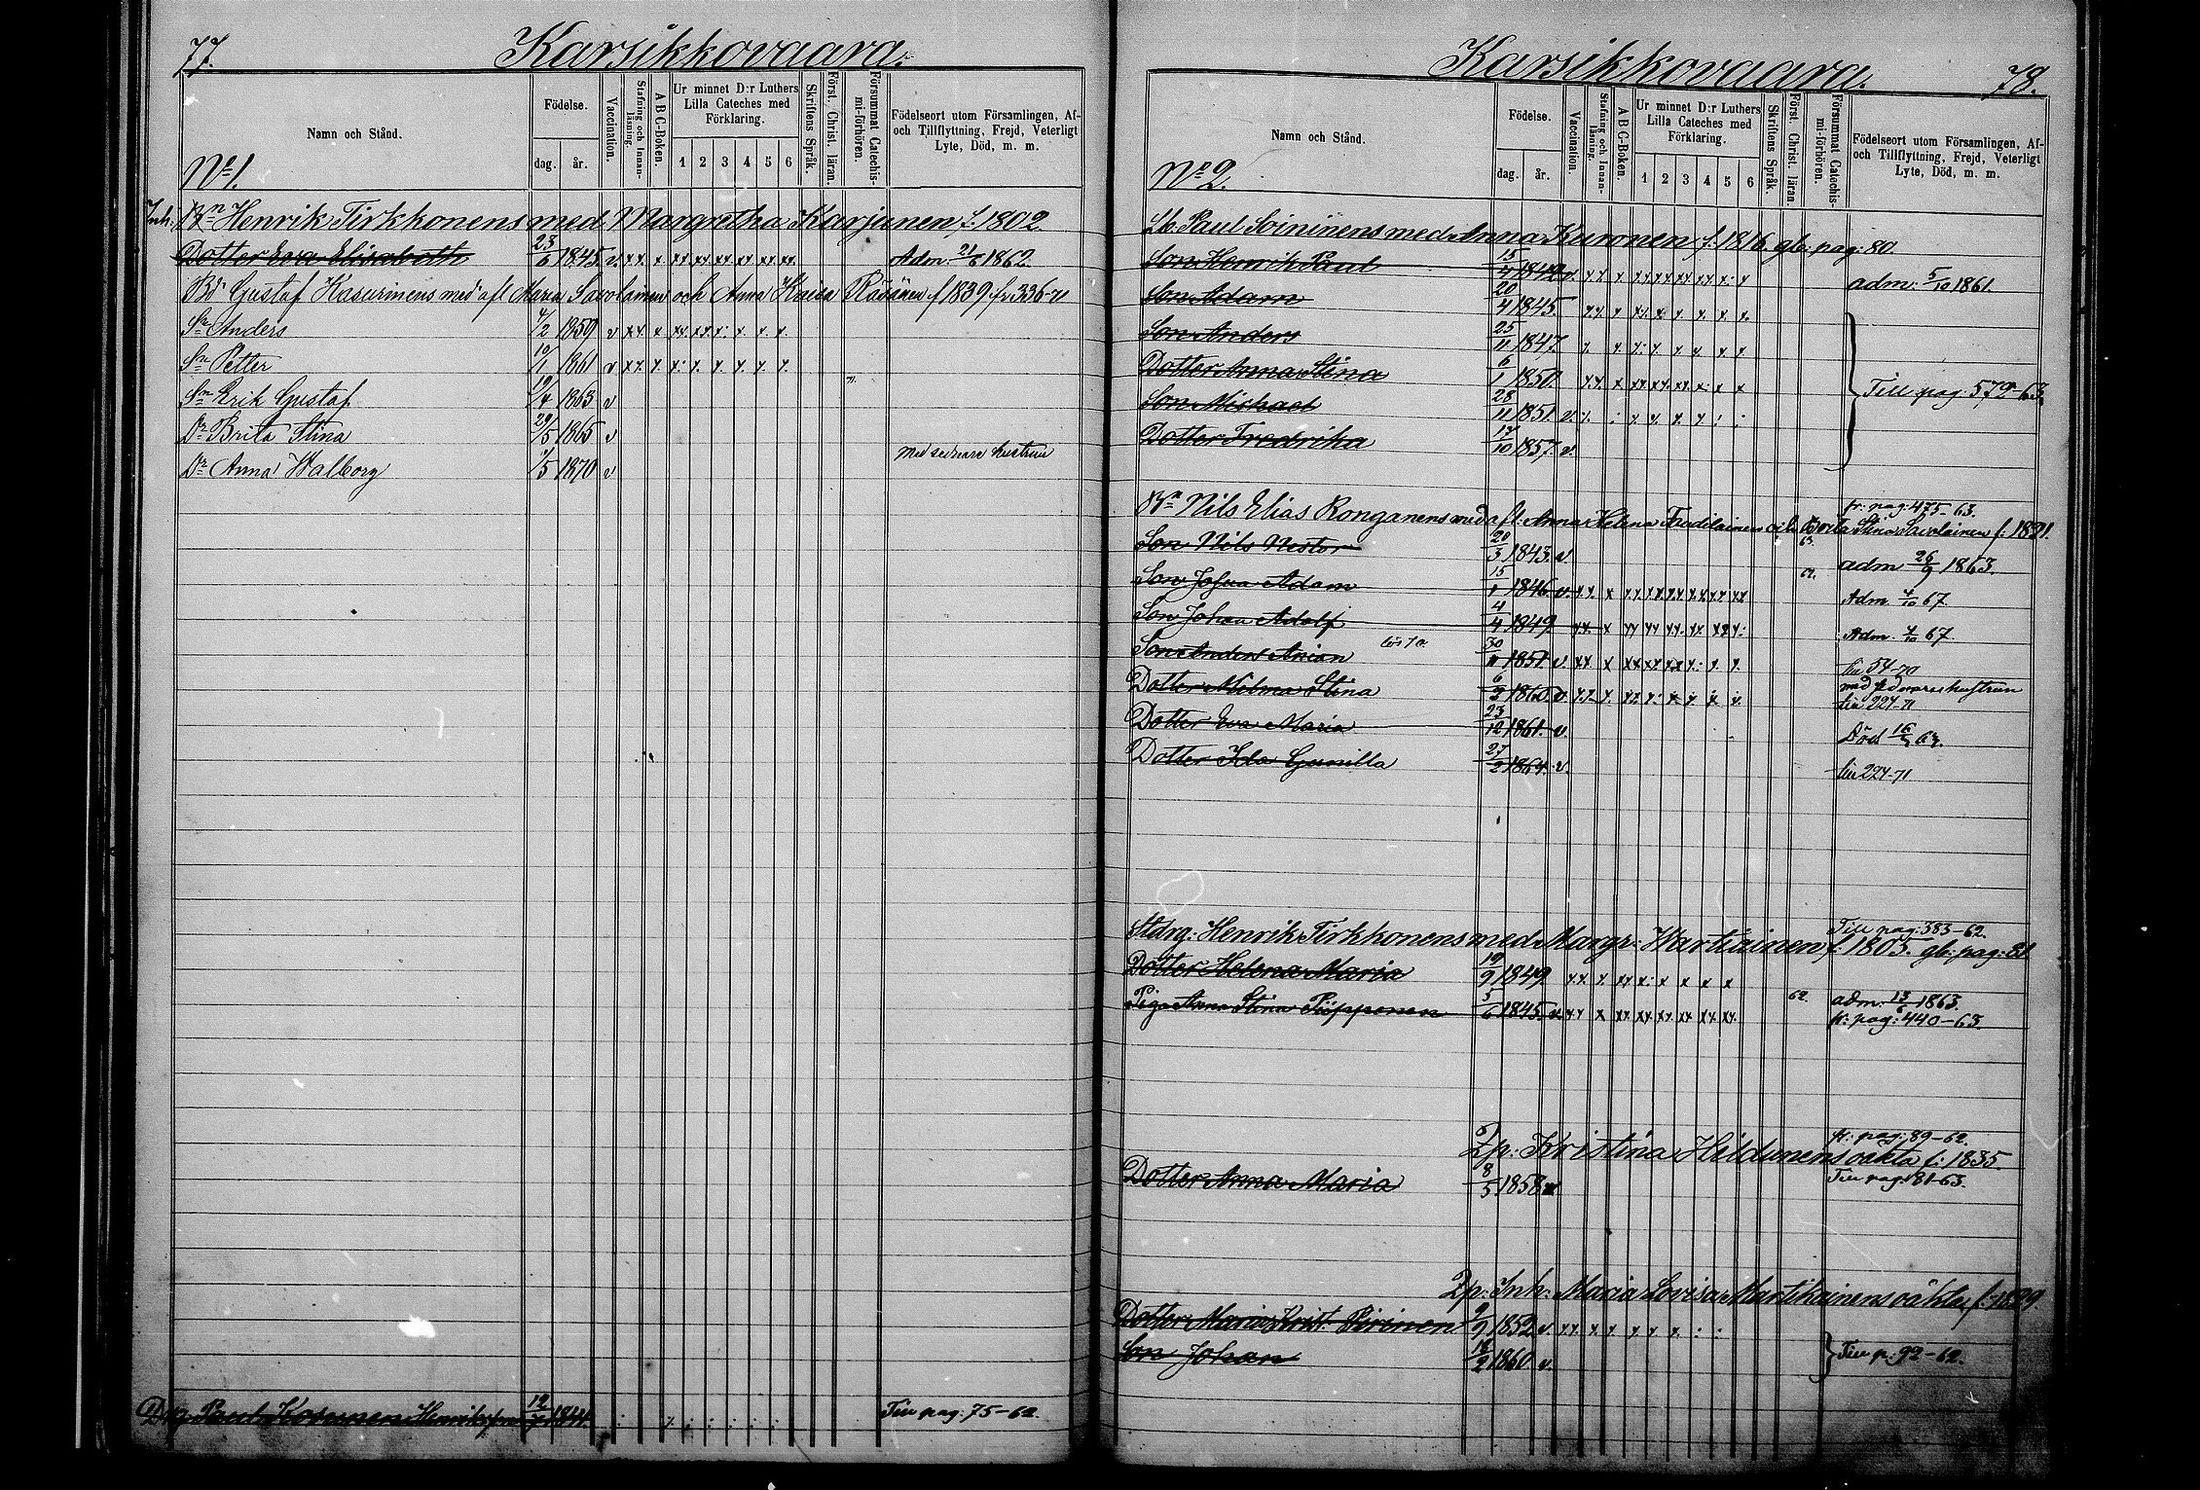 77.
Karsikkovaara.
Namn och Stånd.
Födelse.
dag. år.
Vaccination.
Stafning och Innan-läsning.
A B C-Boken.
Ur minnet D:r Luthers Lilla Cateches med Förklaring.
1 2 3 4 5 6
Skriftens Språk.
Först. Christ. läran.
Försummat Catechis-mi-förhören.
Födelseort utom Församlingen, Af- och Tillflyttning, Frejd, Veterligt Lyte, Död, m. m.
No 1.
Inh. Bn Henrik Tirkkonens med Margretha Karjunen f. 1802.
Dotter Eva Elisabeth 23/6 1845 v. Adm. 21/6 1862.
Bd Gustaf Kasurinens med afl Maria Savolainen och Anna Räsänen f 1839 fr 336-71
Sn Anders 4/2 1859 v
Sn Petter 10/1 1861 v
Sn Erik Gustaf 19/4 1863 v
Dr Brita Stina 29/5 1865 v
med sednare hustrun
Dr Anna Walborg 1/5 1870 v
Drg Paul Kosunen Henriksson 12/7 1844. Till pag: 75-62.
Karsikkovaara. 78.
Namn och Stånd.
Födelse.
dag. år.
Vaccination.
Stafning och Innan-läsning.
A B C-Boken.
Ur minnet D:r Luthers Lilla Cateches med Förklaring.
1 2 3 4 5 6
Skriftens Språk.
Först. Christ. läran.
Försummat Catechis-mi-förhören.
Födelseort utom Församlingen, Af- och Tillflyttning, Frejd, Veterligt Lyte, Död, m. m.
No 2.
Lb. Paul Soininens med Anna Kuronen f. 1816 gb. pag: 80.
Son Henrik Paul 15/7 1842 v. adm: 5/10 1861.
Son Adam 20/4 1845.
Son Anders 25/11 1847.
Dotter Anna Stina 6/1 1850. Till pag: 579-63.
Son Michael 28/11 1851. v.
Dotter Fredrika 17/10 1857. v.
fr: pag: 475-63.
Bn Nils Elias Ronganens med afl. Anna Helena Tradilainen och Brita Stina Savolainen f: 1821.
Son Nils Nestor 20/3 1843. v. 63. adm 26/9 1863.
Son Josua Adam 15/1 1846 v. 62. Adm 4/10 67.
Son Johan Adolf 4/4 1849. Adm. 4/10 67
Son Anders Anian 30/11 1851 v. 54-70
Dotter Milma Stina 6/2 1860. v. med sednare hustrun
till 224-71
Dotter Eva Maria 23/12 1861. v. Död 16/5 63.
Dotter Ida Gunilla 27/2 1864. v. till 224-71
Till pag: 383-62.
Stdrg: Henrik Tirkkonens med Margr: Wartiainen f: 1803. gb: pag: 81
Dotter Helena Maria 19/9 1849.
Piga Anna Stina Piipponen 5/6 1845. v. 62. adm: 13/6 1863.
fr: pag: 440-63.
fr: pag: 89-62.
Zp: Kristina Hildunens oäkta f: 1835.
Dotter Anna Maria 8/5 1858 v Till pag: 181-63.
Zp: Inh: Maria Lovisa Martikainens oäkta f: 1829.
Dotter Maria Krist. Piirinen 9/9 1852 v.
Son Johan 16/2 1860. v. Till p: 92-62.